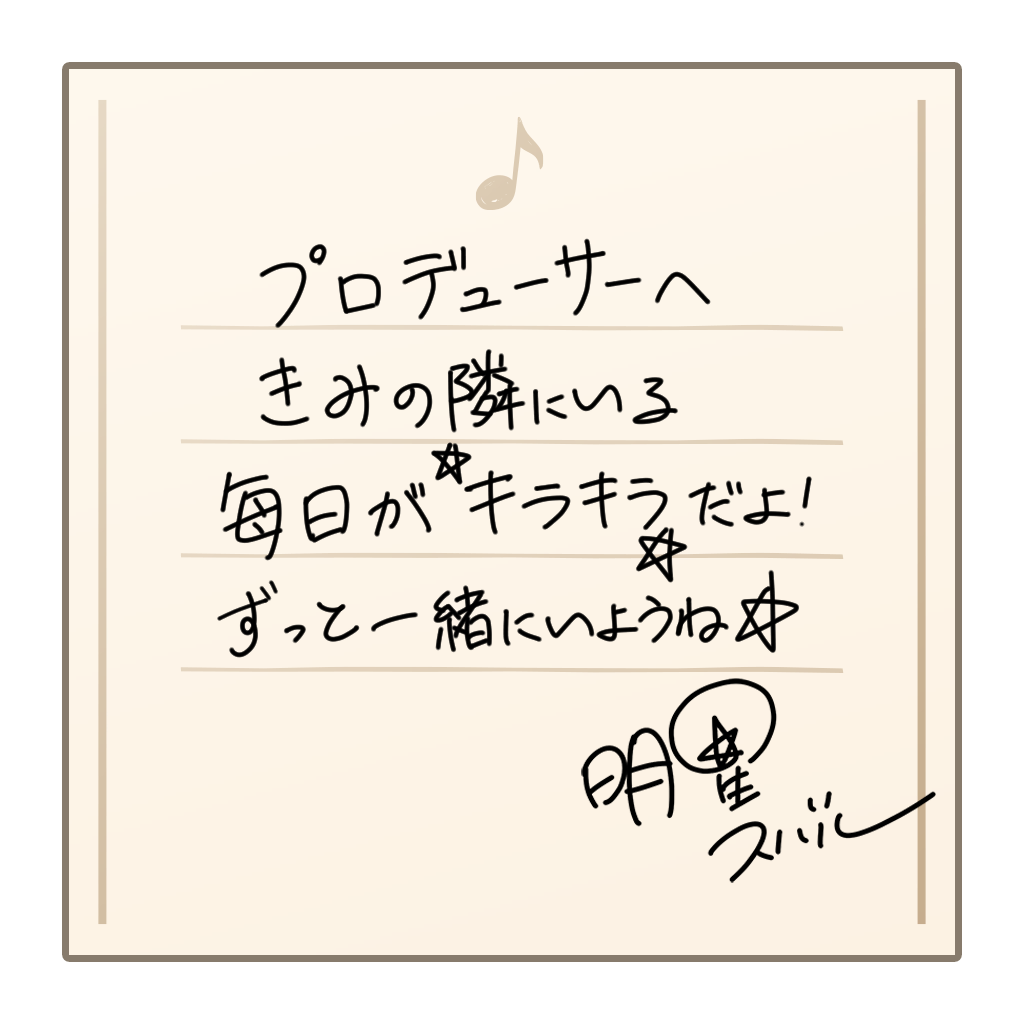 プロデューサーへ
きみの隣にいる
毎日が☆キラキラ☆だよ!
ずっと一緒にいようね☆
明星
スバル